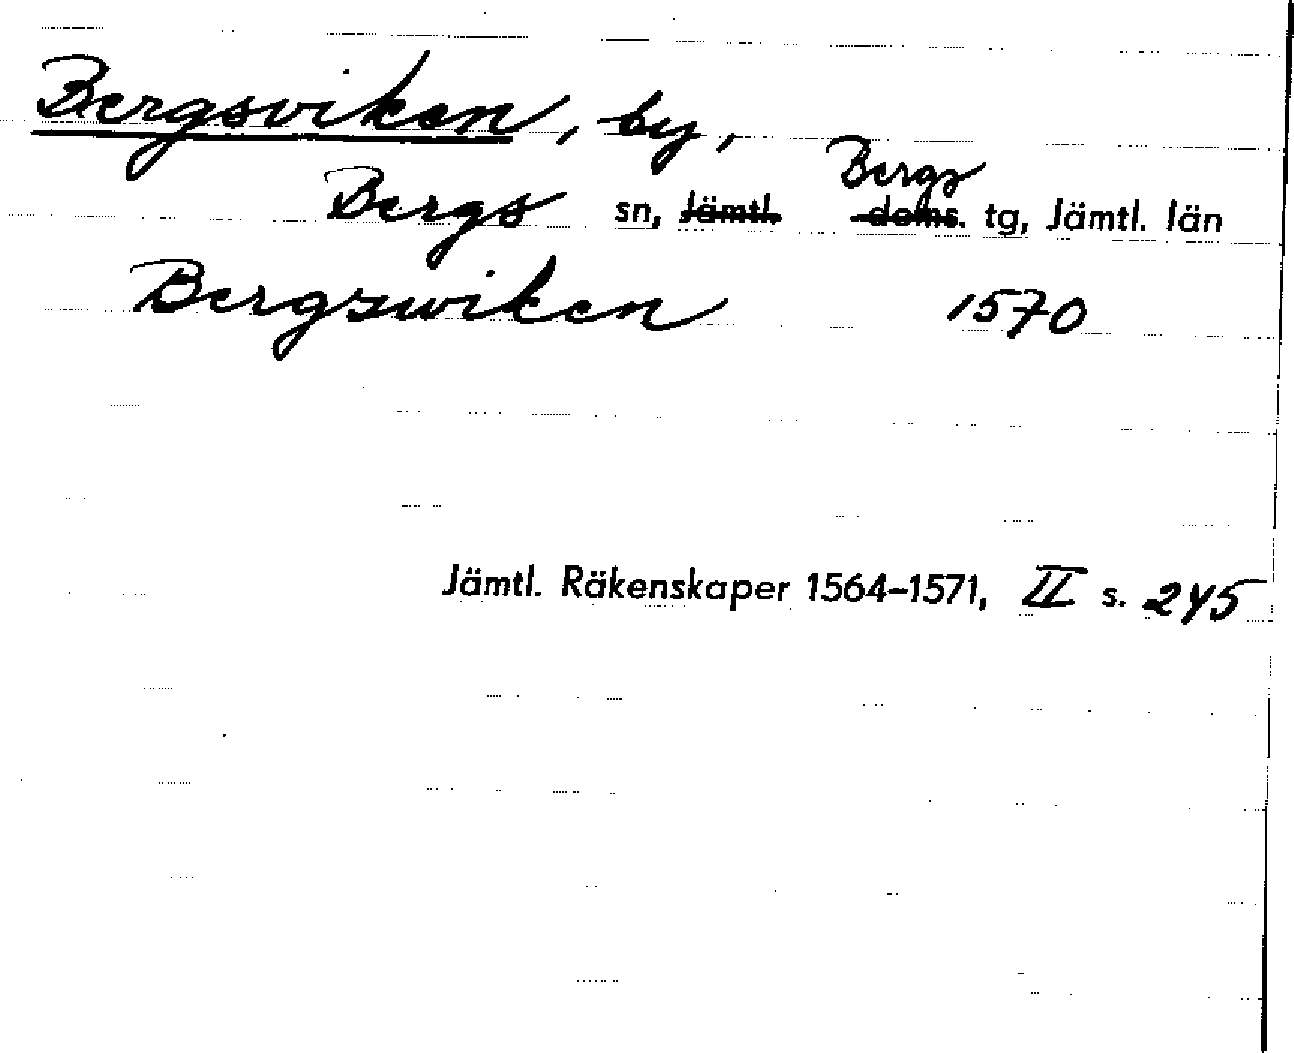 Bergsviken, by,
Bergs sn, Jämtl. Bergs doms. tg, Jämtl. län
Bergswiken 1570
Jämtl. Räkenskaper 1564-1571, II s. 245